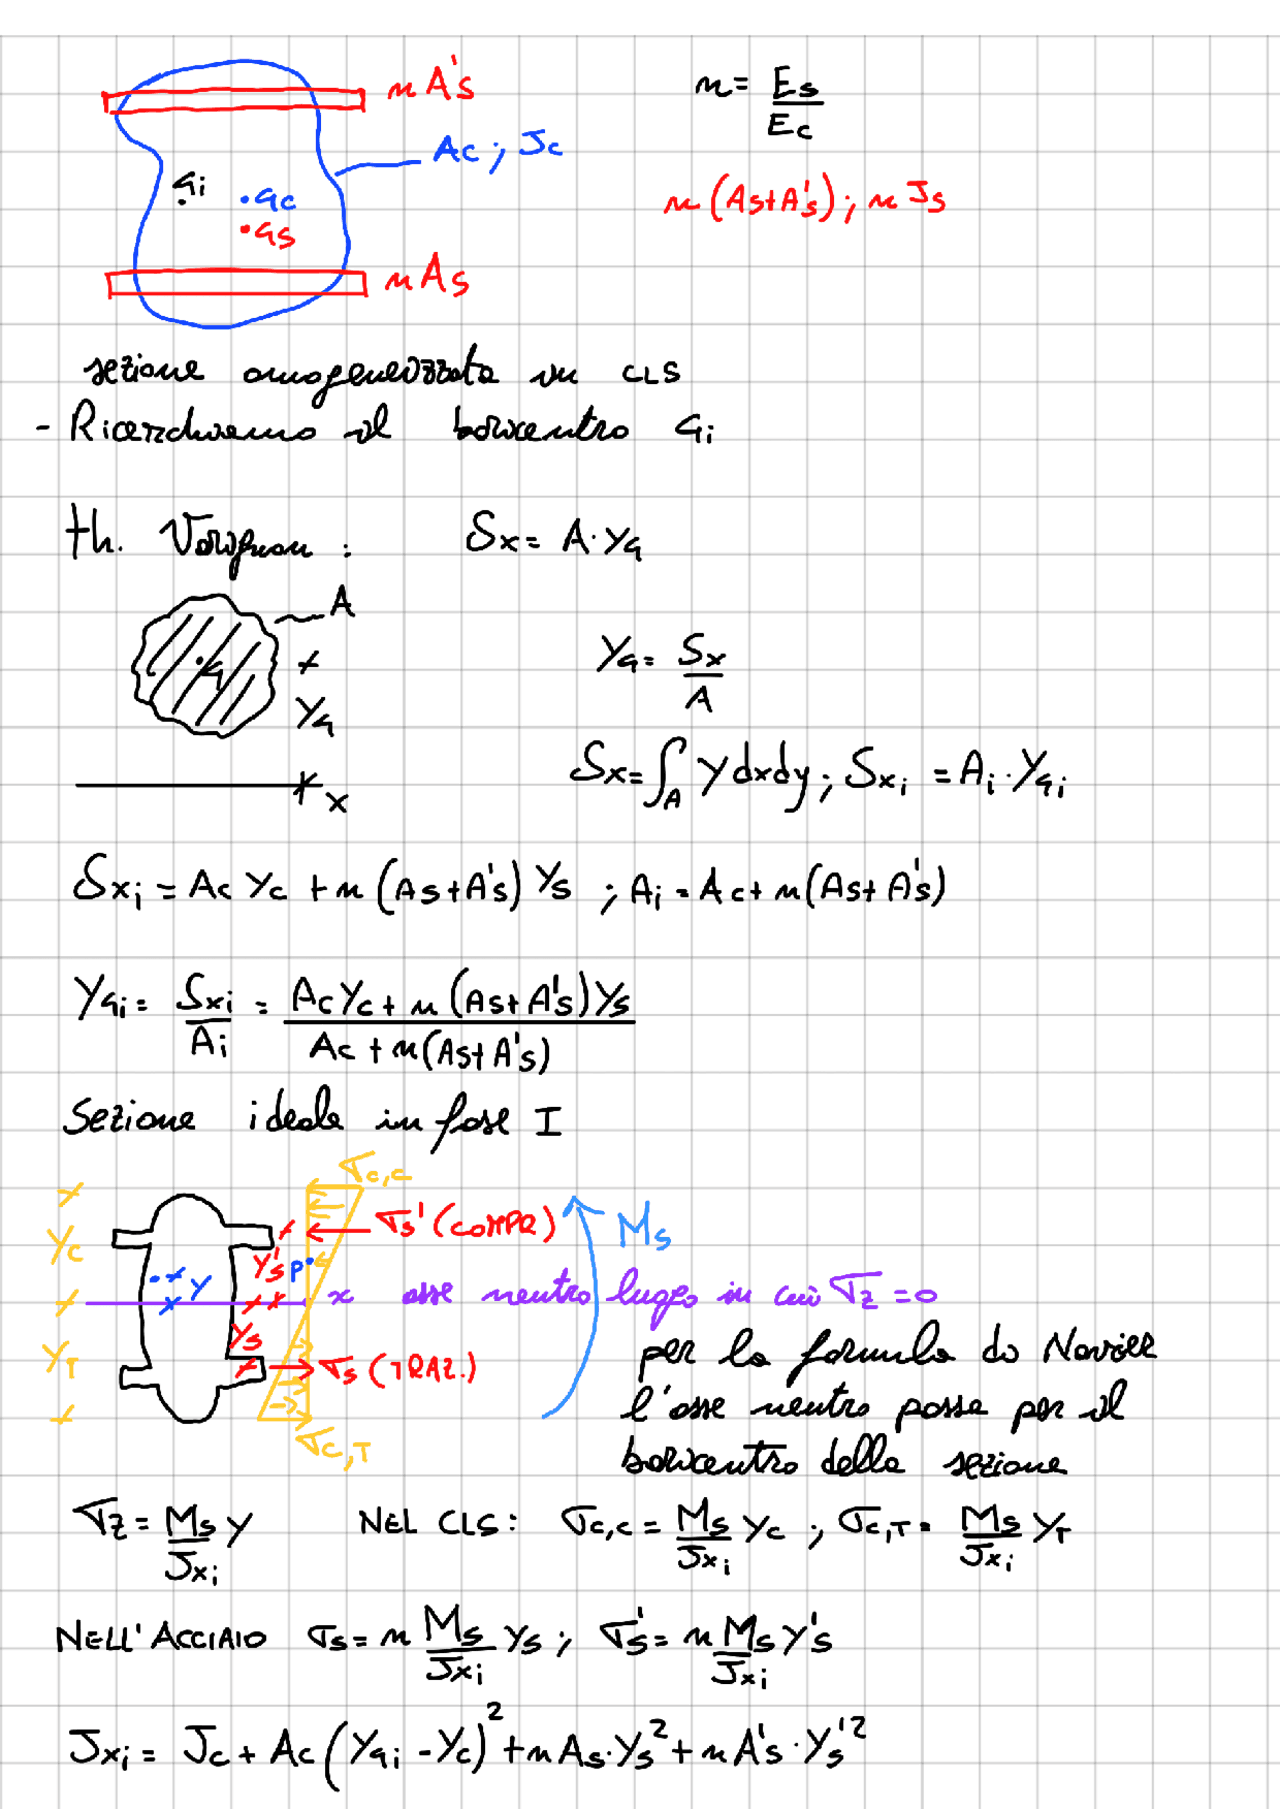 nA's
n = Es/Ec
Ac ; Jc
Gi
Gc
n(As+A's) ; nJs
Gs
nAs
sezione omogeneizzata in CLS
- Ricerchiamo il baricentro Gi
th. Varignon : Sx = A·YG
A
G
YG
YG = Sx/A
Sx = ∫A y dxdy ; Sxi = Ai·YGi
x
Sxi = Ac Yc + n(As+A's) Ys ; Ai = Ac + n(As+A's)
YGi = Sxi/Ai = (AcYc + n(As+A's)Ys)/(Ac + n(As+A's))
Sezione ideale in fase I
σc,c
σs' (COMPR)
Ms
Yc
Y's
P
y
x asse neutro luogo in cui σz = 0
Ys
YT
σs (TRAZ.)
per la formula di Navier
l'asse neutro passa per il
baricentro della sezione
σc,T
σz = Ms/Jxi y NEL CLS : σc,c = Ms/Jxi yc ; σc,T = Ms/Jxi yT
NELL'ACCIAIO σs = n Ms/Jxi ys ; σ's = n Ms/Jxi y's
Jxi = Jc + Ac(YGi - Yc)² + nAs·Ys² + nA's·Ys'²